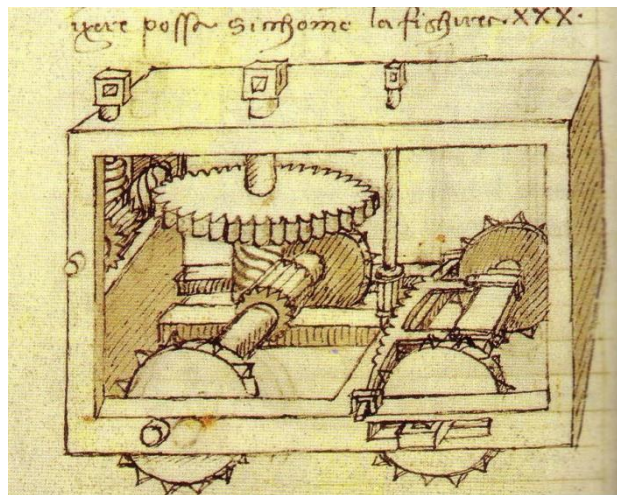 possa sicchome la fighura ·XXX·